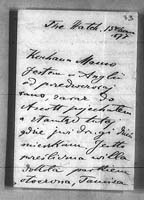 The Hatch, 15
1877
Kochana Mamo
Jestem w Anglii
od przedwczoraj
rano, zaraz do
Ascott pojechałam
a stamtąd tutaj
gdzie już drugi dzień
mieszkam. Jest to
prześliczna willa
parkiem
otoczona, Tamiza